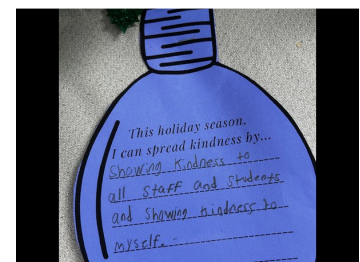 This holiday season,
I can spread kindness by...
Showing kindness to
all Staff and Students
and Showing kindness to
myself.